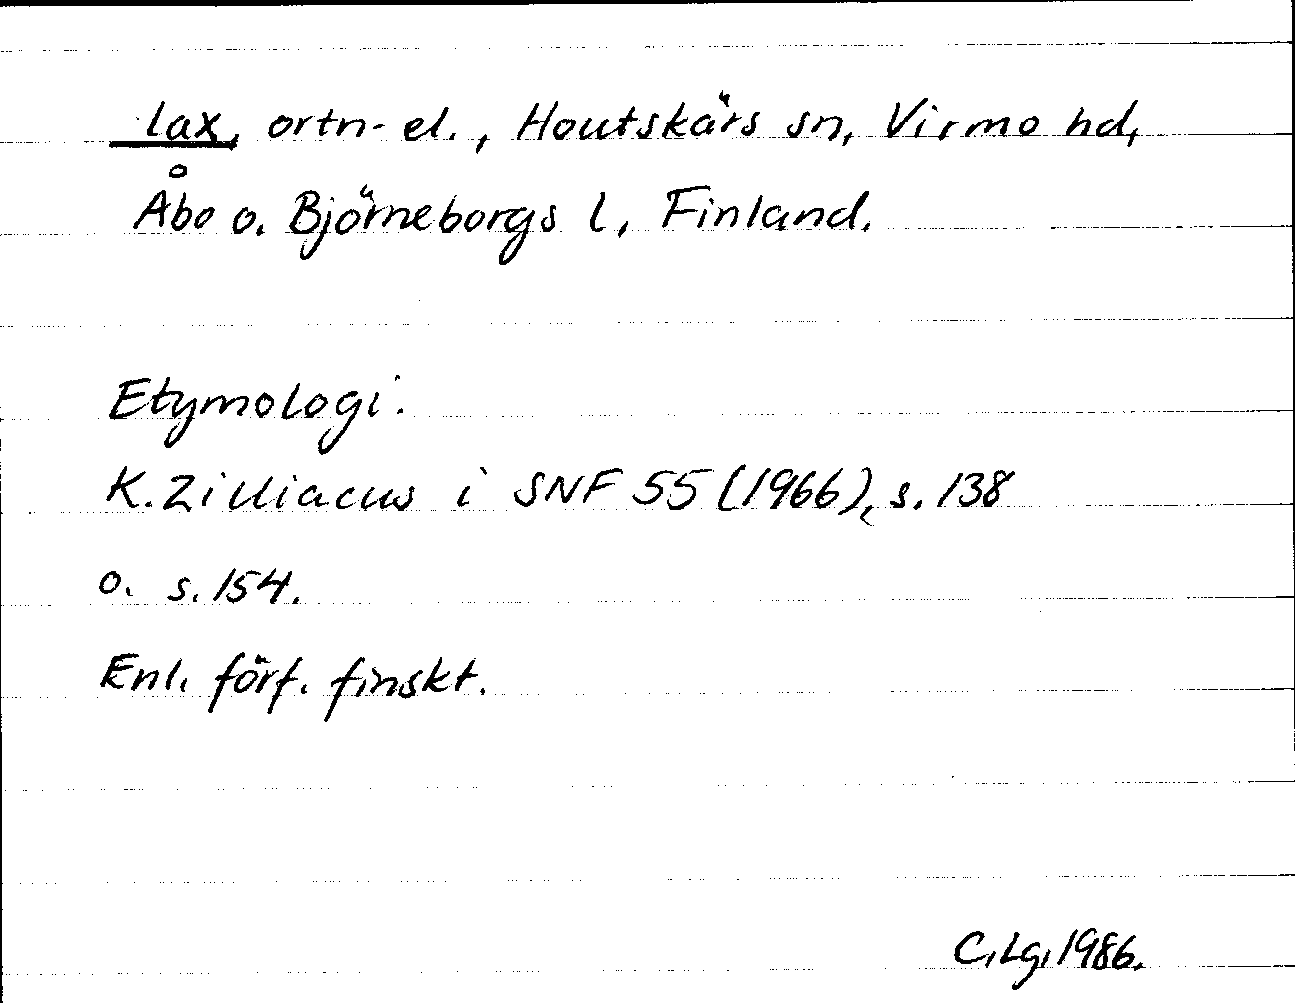 lax, ortn-el., Houtskärs sn, Virmo hd,
Åbo o. Björneborgs l, Finland.
Etymologi:
K. Zilliacus i SNF 55 (1966), s. 138
o. s. 154.
Enl. förf. finskt.
C. Lg. 1986.